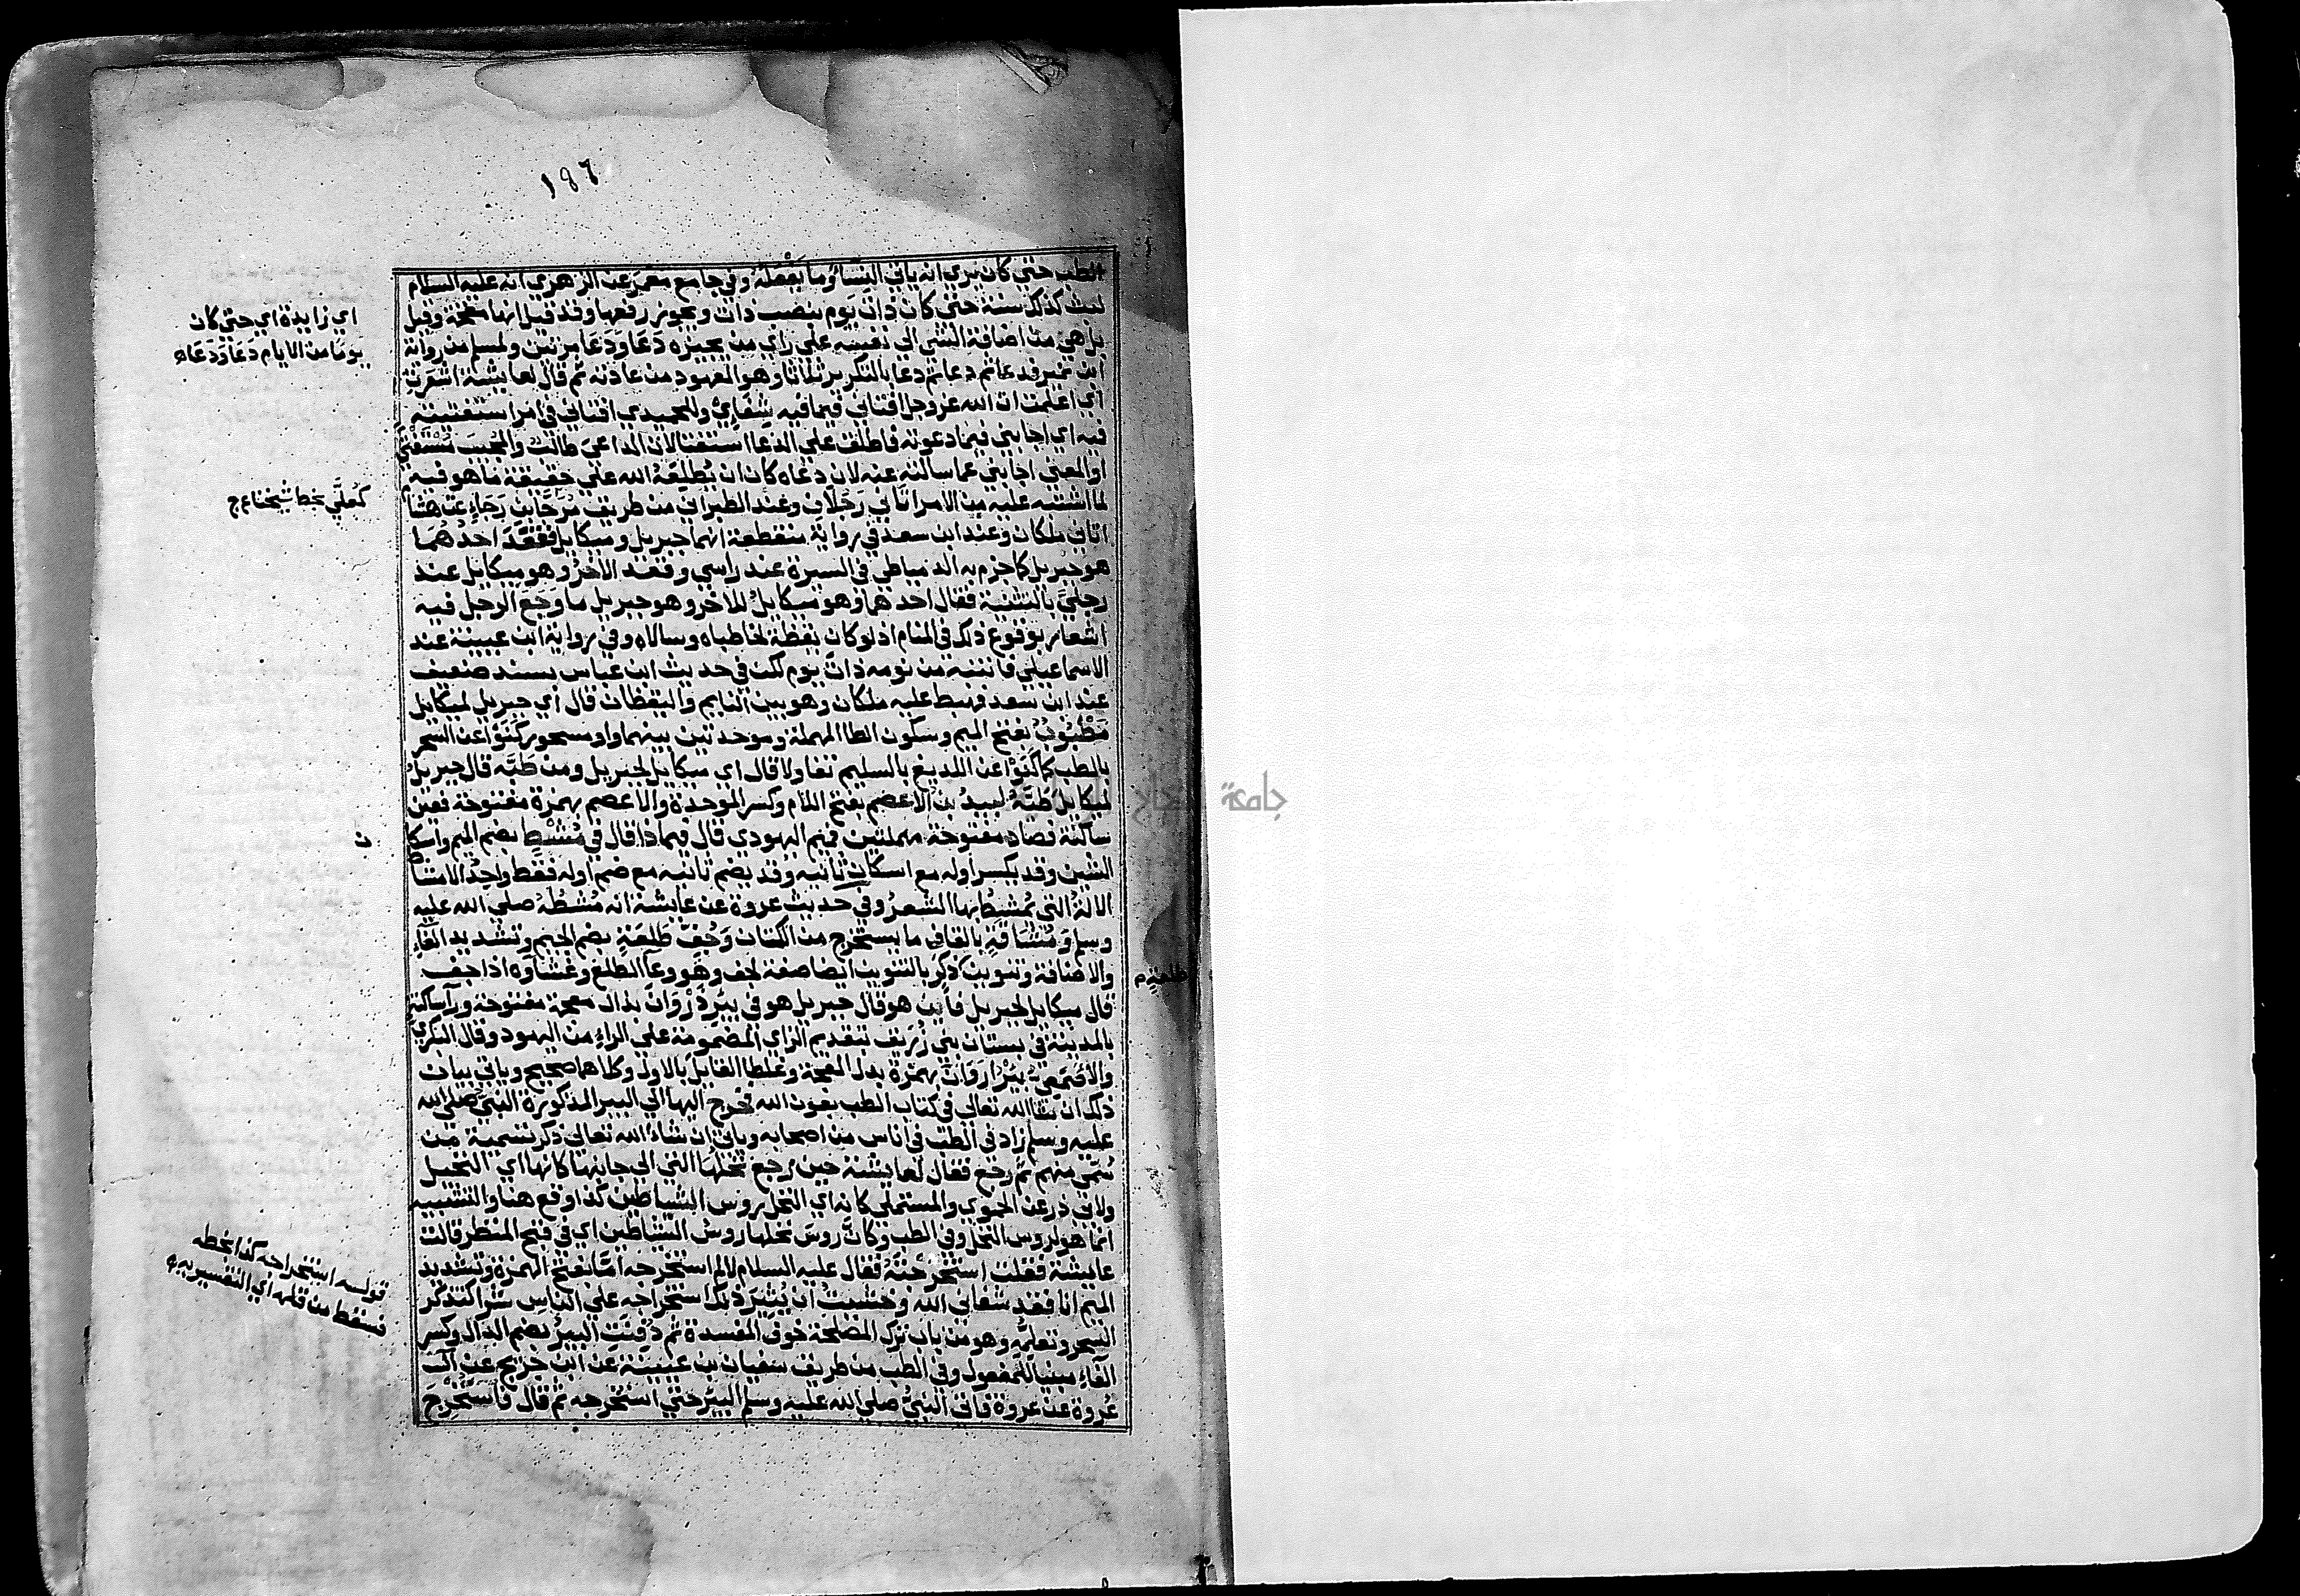 ١٨٦
الطب حتى كان يري انه ياتي النساء وما يفعله وفي جامع معمر عن الزهري انه عليه السلام
لبث كذلك سنة حتى كان ذات يوم بنصب ذات ويجوز رفعها وقد قيل انها مقحمة وقيل
بل هي من اضافة الشي الي نفسه علي راي من يجيزه دعا ودعا مرتين ولمسلم من رواية
ابن نمير فدعا ثم دعا ثم دعا بالتكرير ثلاثا وهو المعهود من عادته ثم قال لعايشة اشعرت
اي اعلمت ان الله عز وجل افتاني فيما فيه شفاءي وللحميدي افتاني في امر استفتيته
فيه اي اجابني فيما دعوته فاطلق علي الدعا استفتا لان الداعي طالب والمجيب مستفتي
او المعني اجابني عما سالته عنه لان دعاه كان ان يطلعه الله علي حقيقة ما هو فيه
لما اشتبه عليه من الامر اتاني رجلان وعند الطبراني من طريق مرجا بن رجاء عن هشا
اتاني ملكان وعند ابن سعد في رواية منقطعة انهما جبريل وميكايل فقعد احدهما
هو جبريل كما جزم به الدمياطي في السيرة عند راسي وقعد الاخر وهو ميكايل عند
رجلي بالتثنية فقال احدهما وهو ميكايل للاخر وهو جبريل ما وجع الرجل فيه
اشعار بوقوع ذلك في المنام اذ لو كان يقظة لخاطباه وسالاه وفي رواية ابن عيينة عند
الاسماعيلي فانتبه من نومه ذات يوم لكن في حديث ابن عباس بسند ضعيف
عند ابن سعد فهبط عليه ملكان وهو بين النايم واليقظان قال اي جبريل لميكايل
مطبوب بفتح الميم وسكون الطا المهملة وموحدتين بينهما واو مسحور كنوا عن السحر
بالطب كما كنوا عن اللديغ بالسليم تفاولا قال اي ميكايل لجبريل ومن طبه قال جبريل
لميكايل طبه لبيد بن الاعصم بفتح اللام وكسر الموحدة والاعصم بهمزة مفتوحة فعين
ساكنة فصاد مفتوحة مهملتين فميم اليهودي قال فيما ذا قال في مشط بضم الميم واسكا
الشين وقد يكسر اوله مع اسكان ثانيه وقد يضم ثانيه مع ضم اوله فقط واحد الامشا
الالة التي يمشط بها الشعر وفي حديث عروة عن عايشة انه مشطه صلي الله عليه
وسلم ومشاقة بالقاف ما يستخرج من الكتان وجف طلعة بضم الجيم وتشديد الفاء
والاضافة وتنوين ذكر بالتنوين ايضا صفة لجف وهو وعا الطلع وغشاوه اذا جف
قال ميكايل لجبريل فاين هو قال جبريل هو في بير ذروان بذال معجمة مفتوحة وراساكنة
بالمدينة في بستان بني زريق بتقديم الزاي المضمومة علي الراء من اليهود وقال البكري
والاصمعي بير اروان بهمزة بدل المعجمة وغلطا القايل بالاول وكلاهما صحيح وياتي بيان
ذلك ان شا الله تعالي في كتاب الطب بعون الله فخرج اليها الي البير المذكورة النبي صلي الله
عليه وسلم زاد في الطب في اناس من اصحابه وياتي ان شاء الله تعالي ذكر تسمية من
سمي منهم ثم رجع فقال لعايشة حين رجع نخلها التي الي جانبها كانها اي النخيل
ولابي ذر عن الحموي والمستملي كانه اي النخل روس الشياطين كذا وقع هنا والتشبيه
انما هو لروس النخل وفي الطب وكان روس نخلها روس الشياطين اي في قبح المنظر قالت
عايشة فقلت استخرجته فقال عليه السلام لا لم استخرجه اما بفتح الهمزة وتشديد
الميم انا فقد شفاني الله وخشيت ان يثير ذلك استخراجه علي الناس شرا كتذكر
السحر وتعلمه وهو من باب ترك المصلحة خوف المفسدة ثم دفنت البير بضم الدال وكسر
الفاء مبنيا للمفعول وفي الطب من طريق سفيان بن عيينة عن ابن جريج عن آل
عروة عن عروة فاتي النبي صلي الله عليه وسلم البير حتي استخرجه ثم قال فاستخرج
اي زايدة اي حتي كان
يوما من الايام دعا ودعا
بخط شيخنا
ن
طلعة م
قوله استخراجه كذا بخطه
فسقط من قلمه اي التفسيرية
جامعة